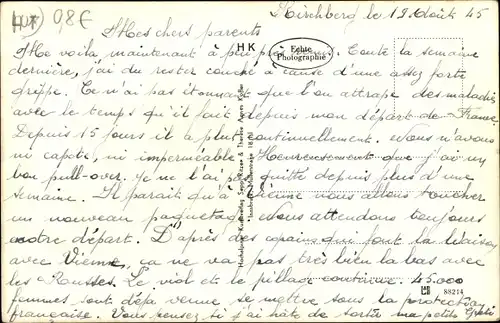 LUX 08€
Kirchberg le 19 Août 45
Mes chers parents
HK
Echte Photographie
Me voila maintenant à peu près remis. Toute la semaine
dernière, j'ai du rester couché à cause d'une assez forte
grippe. Ce n'ai pas étonnant que l'on attrape des maladies
avec le temps qu'il fait depuis mon départ de France
Depuis 15 jours il a plut continuellement. Nous n'avons
ni capote, ni imperméable. Heureusement que j'ai un
bon pull-over. Je ne l'ai pas quitté depuis plus d'une
semaine. Il parait qu'à Vienne nous allons toucher
un nouveau paquetage. Nous attendons toujours
notre départ. D'après des copains qui font la liaison
avec Vienne, ca ne va pas très bien la bas avec
les Russes. Le viol et le pillage continue. 45.000
femmes sont déja venue se mettre sous la protection
française. Vous pensez si j'ai hâte de sortir ma petite
88214